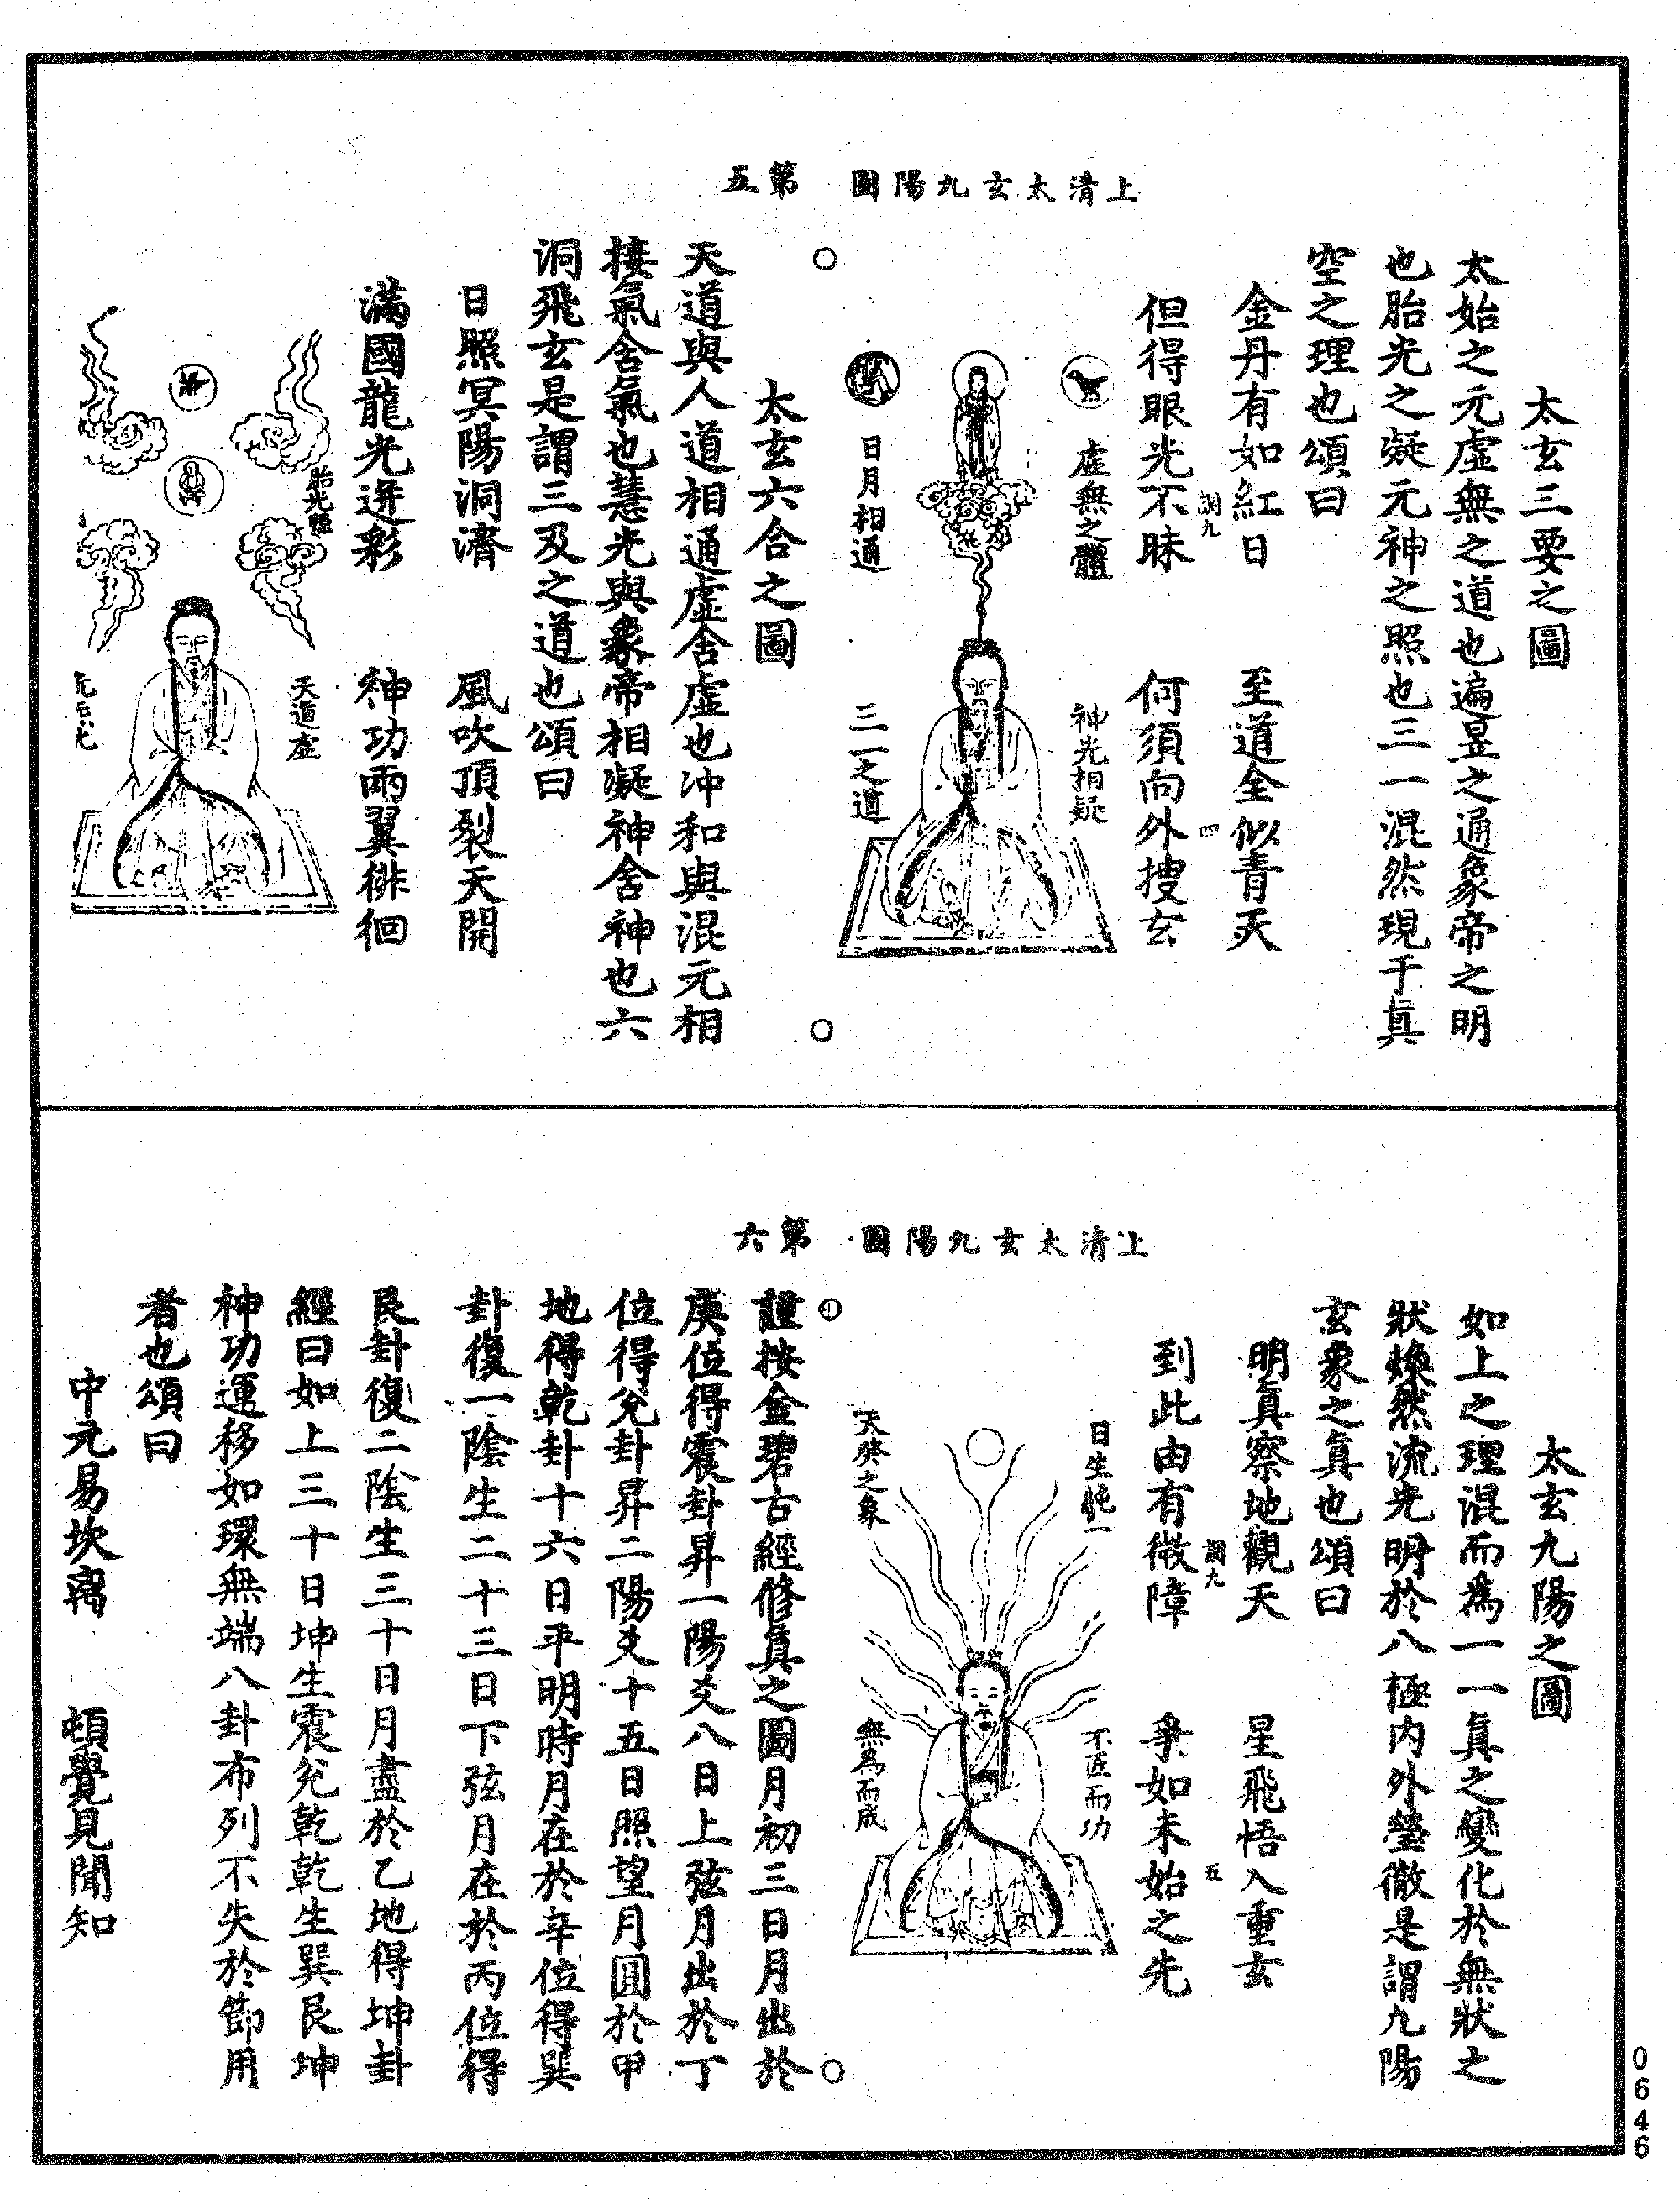 上清太玄九陽圖　第五
太玄三要之圖
太始之元虛無之道也遍昱之通象帝之明
也胎光之凝元神之照也三一混然現于真
空之理也頌曰
金丹有如紅日　至道全似青天
洞九　四
但得眼光不昧　何須向外搜玄
虛無之體　神光相疑
日月相通　三一之道
太玄六合之圖
天道與人道相通虛舍虛也沖和與混元相
接氣舍氣也慧光與象帝相凝神舍神也六
洞飛玄是謂三及之道也頌曰
日照冥陽洞濟　風吹頂裂天開
滿國龍光迸彩　神功兩翼徘徊
胎光照　天道虛
上清太玄九陽圖　第六
太玄九陽之圖
如上之理混而為一一真之變化於無狀之
狀煥然流光明於八極內外瑩徹是謂九陽
玄象之真也頌曰
明真察地觀天　星飛悟入重玄
洞九　五
到此由有微障　爭如未始之先
日生純一　不匠而功
天癸之象　無為而成
謹按金碧古經修真之圖月初三日月出於
庚位得震卦昇一陽爻八日上弦月出於丁
位得兌卦昇二陽爻十五日照望月圓於甲
地得乾卦十六日平明時月在於辛位得巽
卦復一陰生二十三日下弦月在於丙位得
艮卦復二陰生三十日月盡於乙地得坤卦
經曰如上三十日坤生震兌乾乾生巽艮坤
神功運移如環無端八卦布列不失於節用
者也頌曰
中元易坎离　頓覺見聞知
0646